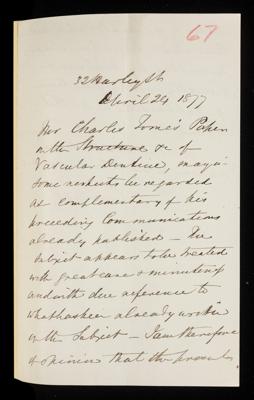 67
32 Harley St
April 24 1877
Mr Charles Tomes's Paper
on the Structure &c of
Vascular Dentine, may in
some respects be regarded
as complementary of his
preceding Communications
already published – The
subject appears to be treated
with great care & minuteness
and with due reference to
what has been already written
on the Subject – I am therefore
of opinion that the present